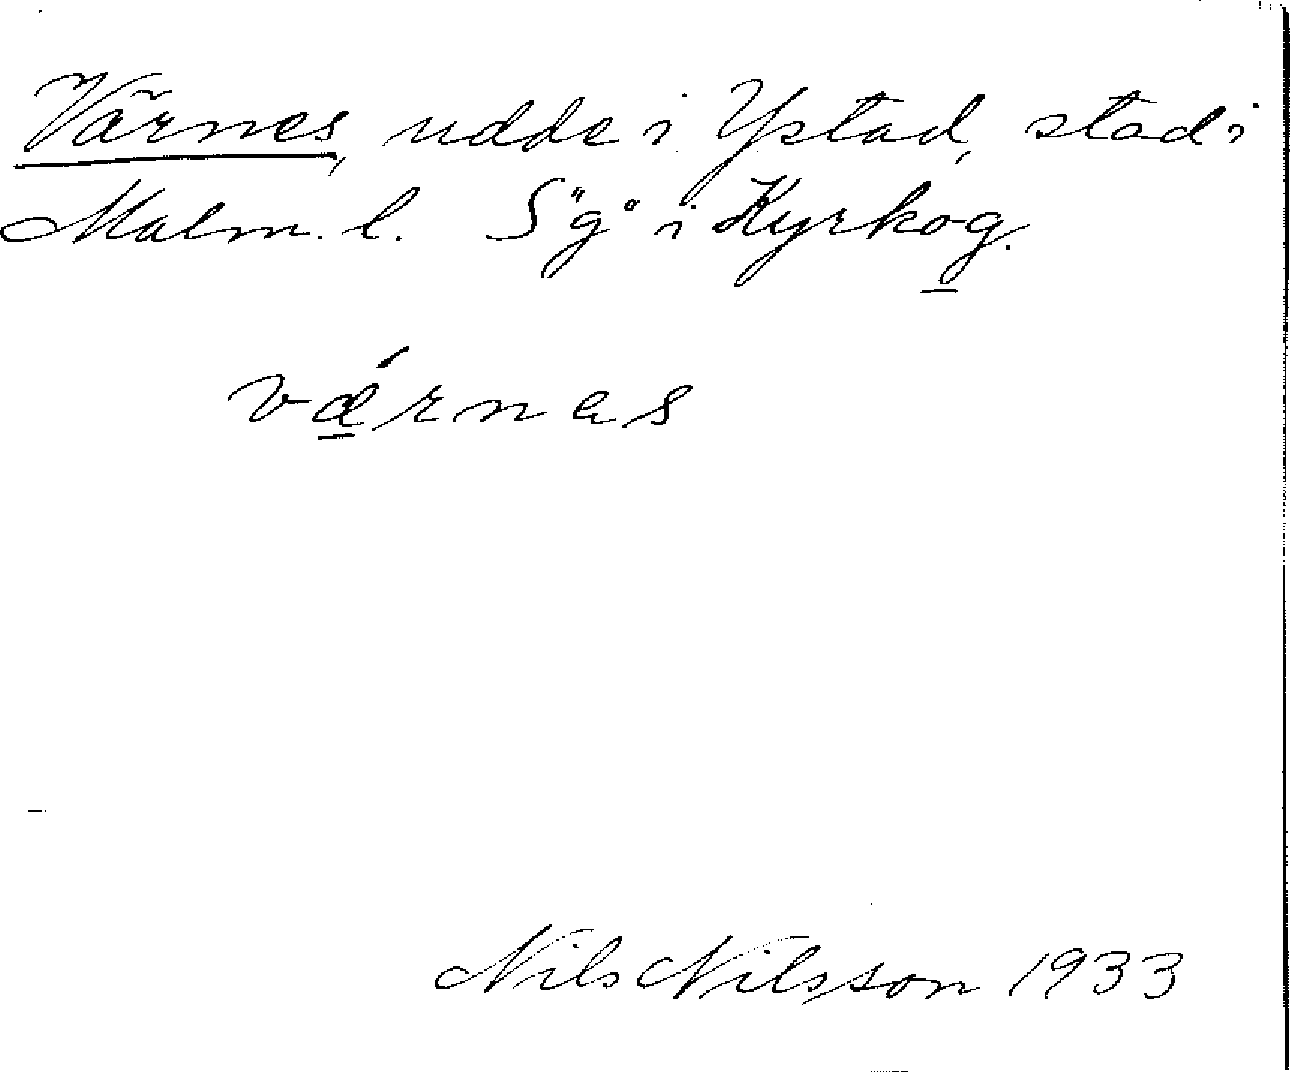 Värnes, udde i Ystad, stad i
Malm. l. S"g° i Kyrkog.
vǽrnas
Nils Nilsson 1933